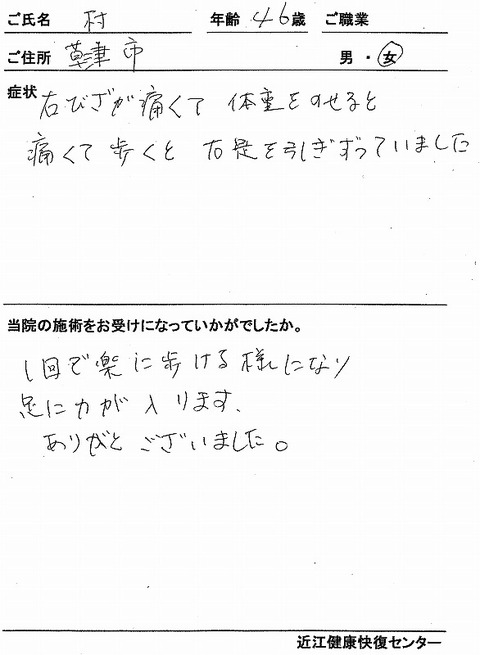 ご氏名 村 年齢 46歳 ご職業
ご住所 草津市 男・女
症状 右ひざが痛くて 体重をのせると
痛くて歩くと 右足を引きずっていました
当院の施術をお受けになっていかがでしたか。
1回で楽に歩ける様になり
足に力が入ります、
ありがとございました。
近江健康快復センター